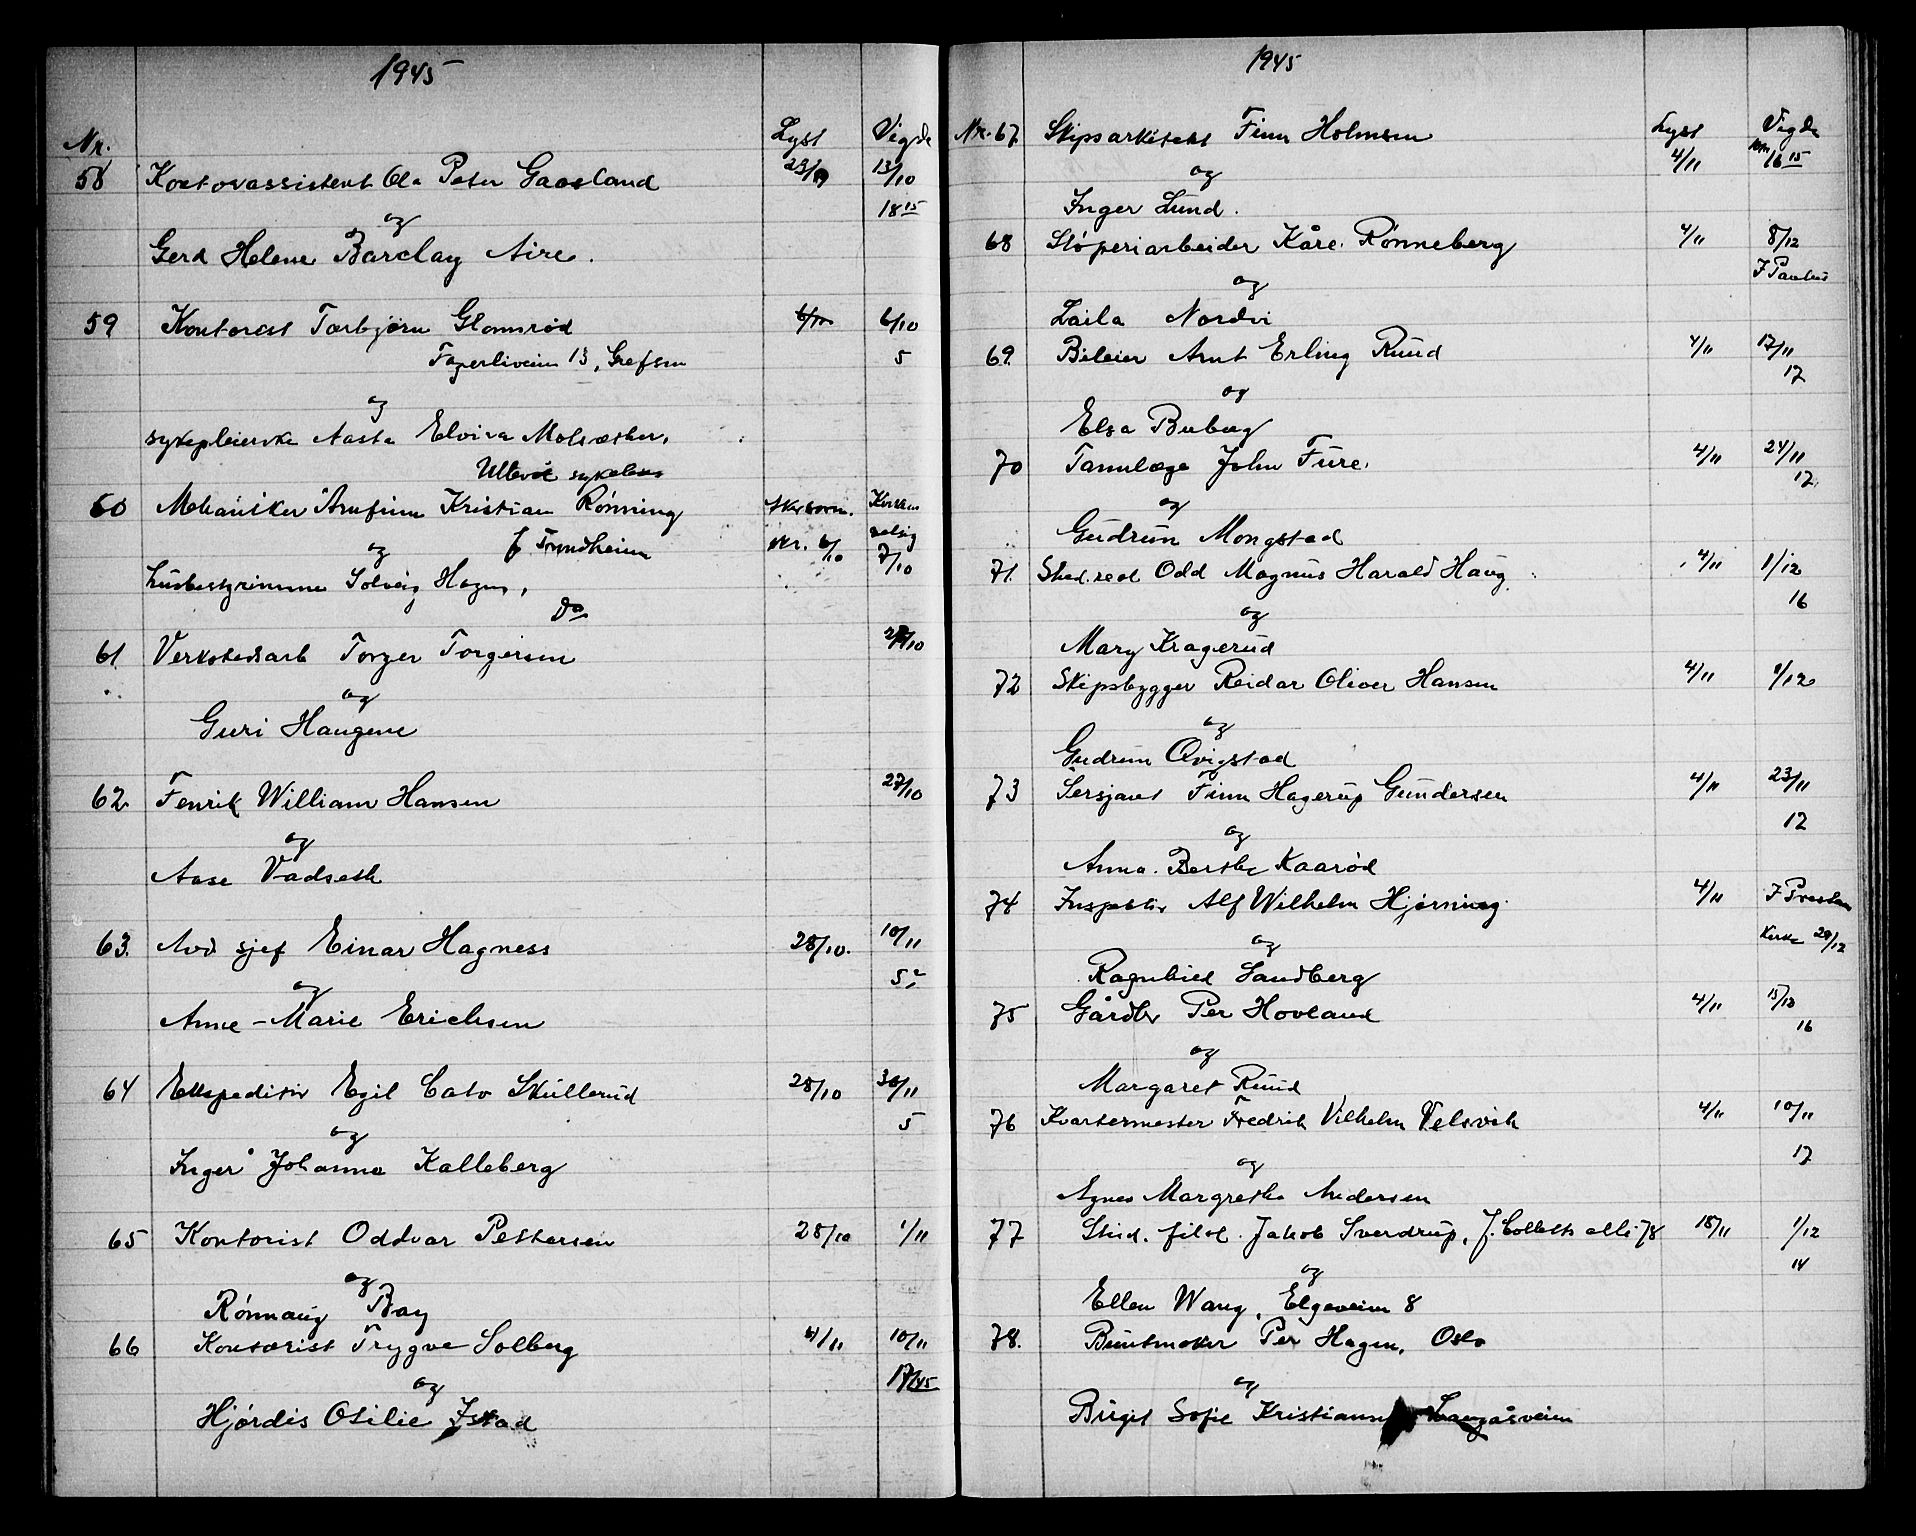 1945
Nr. Lyst Vigde
58 Kontorassistent Ola Peter Gaasland 23/9 13/10
og 18 15
Gerd Helene Barclay Aire.
59 Kontorist Torbjørn Glomsrød 6/10 6/10
Fagerliveien 13, Grefsen 5
og
sykepleierske Aasta Elvira
Ullevål sykehus
60 Mekaniker Arnfinn Kristian Rønning
og f Trondheim Nr. 6/10 7/10
husbestyrinne Solveig Hagen,
Do
61 Verkstedsarb Torger Torgersen /10
og
Guri Haugene
62 Fenrik William Hansen 27/10
og
Aase Vadseth
63. Avd sjef Einar Hagness 28/10. 10/11
og 5
Anne-Marie Erichsen
64 Ekspeditør Egil Cato Skullerud 28/10 30/11
og 5
Inger Johanne Kalleberg
65 Kontorist Oddvar Pettersen 28/10 1/11
og
Rønnaug Bay
66 Kontorist Trygve Solberg 4/11 10/11
og 17/45
Hjørdis Otilie Istad
1945
Nr. 67 Skipsarkitekt Finn Holmsen Lyst Vigde
og 4/11 16 15
Inger Lund.
68 Støperiarbeider Kåre Rønneberg 4/11 8/12
og I Paulus
Laila Nordvi
69. Bileier Arnt Erling Ruud 4/11 17/11
og 17
Elsa
70 Tannlæge John Fure. 4/11 24/11
og 17
Gudrun Mongstad
71. Stud. real Odd Magnus Harald Haug 4/11 1/12
og 16
Mary Kragerud
72 Skipsbygger Reidar Oliver Hansen 4/11 1/12
og
Gudrun Qvigstad
73 Sersjant Finn Hagerup Gundersen 4/11 23/11
og 17
Anna Berthe Kaarød
74 Inspektør Alf Wilhelm Hjørning 4/11
og Kirke 29/12
Ragnhild Sandberg
75 Gårdbr Per Hovland 4/11 15/12
og 16
Margaret Ruud
76 Kvartermester Fredrik Vilhelm Velsvik 4/11 10/11
og 17
Agnes Margrethe Andersen
77 Stud. filol. Jakob Sverdrup, J. Colletts alle 78 18/11 1/12
og 14
Ellen Wang, Elgeveien 8
78. Buntmaker Per Hagen, Oslo
og
Birgit Sofie Kristiansen Langåsveien